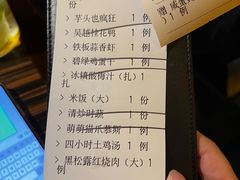 > 芋头也疯狂 1 例
> 吴越桂花鸭 1 例
> 铁板蒜香虾 1 例
> 碧绿鸡蛋干 1 例
> 冰镇酸梅汁（扎） 1
扎
> 米饭（大） 1 份
> 清炒时蔬 1 份
> 萌萌猫爪慕斯 1 例
> 四小时土鸡汤 1 例
> 黑松露红烧肉（大）1
例